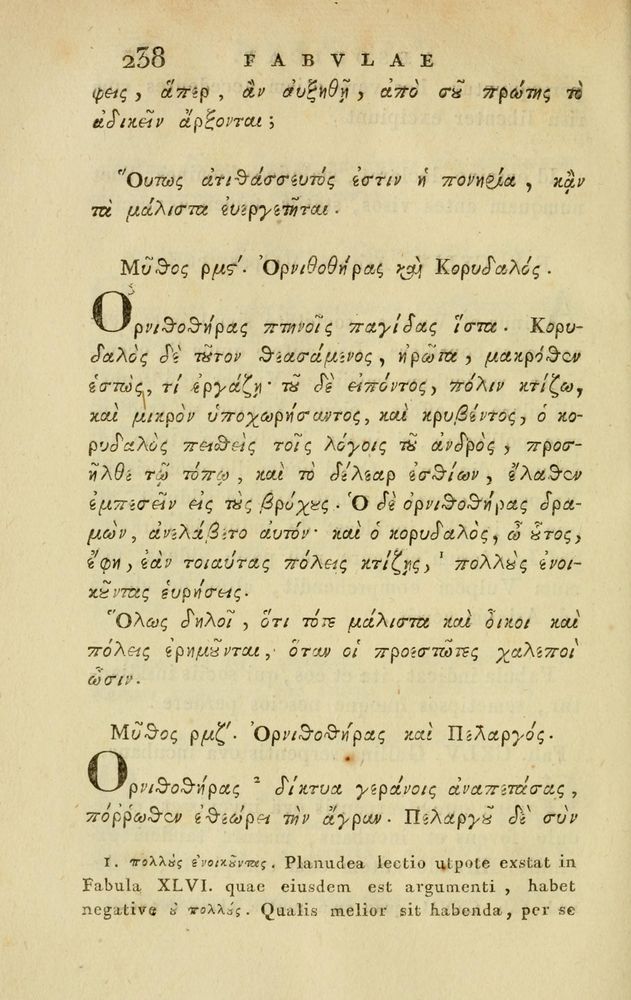 238 FABVLAE
φεις, ἅπερ, ἂν ἀυξηθῇ, ἀπὸ σοῦ πρώτης τὸ
ἀδικεῖν ἄρξονται;
Ὅυτως ἀτιθάσσευτός ἐστιν ἡ πονηρία, κᾂν
τὰ μάλιστα ἐυεργετῆται.
Μῦθος ρμϛʹ. Ὀρνιθοθήρας καὶ Κορυδαλός.
Ὀρνιθοθήρας πτηνοῖς παγίδας ἵστα. Κορυ-
δαλὸς δὲ τοῦτον θεασάμενος, ἠρώτα, μακρόθεν
ἑστὼς, τί ἐργάζῃ· τοῦ δὲ εἰπόντος, πόλιν κτίζω,
καὶ μικρὸν ὑποχωρήσαντος, καὶ κρυβέντος, ὁ κο-
ρυδαλὸς πειθεὶς τοῖς λόγοις τοῦ ἀνδρὸς, προσ-
ῆλθε τῷ τόπῳ, καὶ τὸ δέλεαρ ἐσθίων, ἔλαθεν
ἐμπεσεῖν εἰς τοὺς βρόχους. Ὁ δὲ ὀρνιθοθήρας δρα-
μὼν, ἀνελάβετο ἀυτόν· καὶ ὁ κορυδαλὸς, ὦ οὗτος,
ἔφη, ἐὰν τοιαύτας πόλεις κτίζῃς, ¹ πολλοὺς ἐνοι-
κοῦντας ἑυρήσεις.
Ὅλως δηλοῖ, ὅτι τότε μάλιστα καὶ ὄικοι καὶ
πόλεις ἐρημοῦνται, ὅταν οἱ προεστῶτες χαλεποὶ
ὦσιν.
Μῦθος ρμζʹ. Ὀρνιθοθήρας καὶ Πελαργός.
Ὀρνιθοθήρας ² δίκτυα γεράνοις ἀναπετάσας,
πόῤῥωθεν ἐθεώρει τὴν ἄγραν. Πελαργοῦ δὲ σὺν
1. πολλοὺς ἐνοικοῦντας. Planudea lectio utpote exstat in
Fabula XLVI. quae eiusdem est argumenti, habet
negative οὐ πολλούς. Qualis melior sit habenda, per se